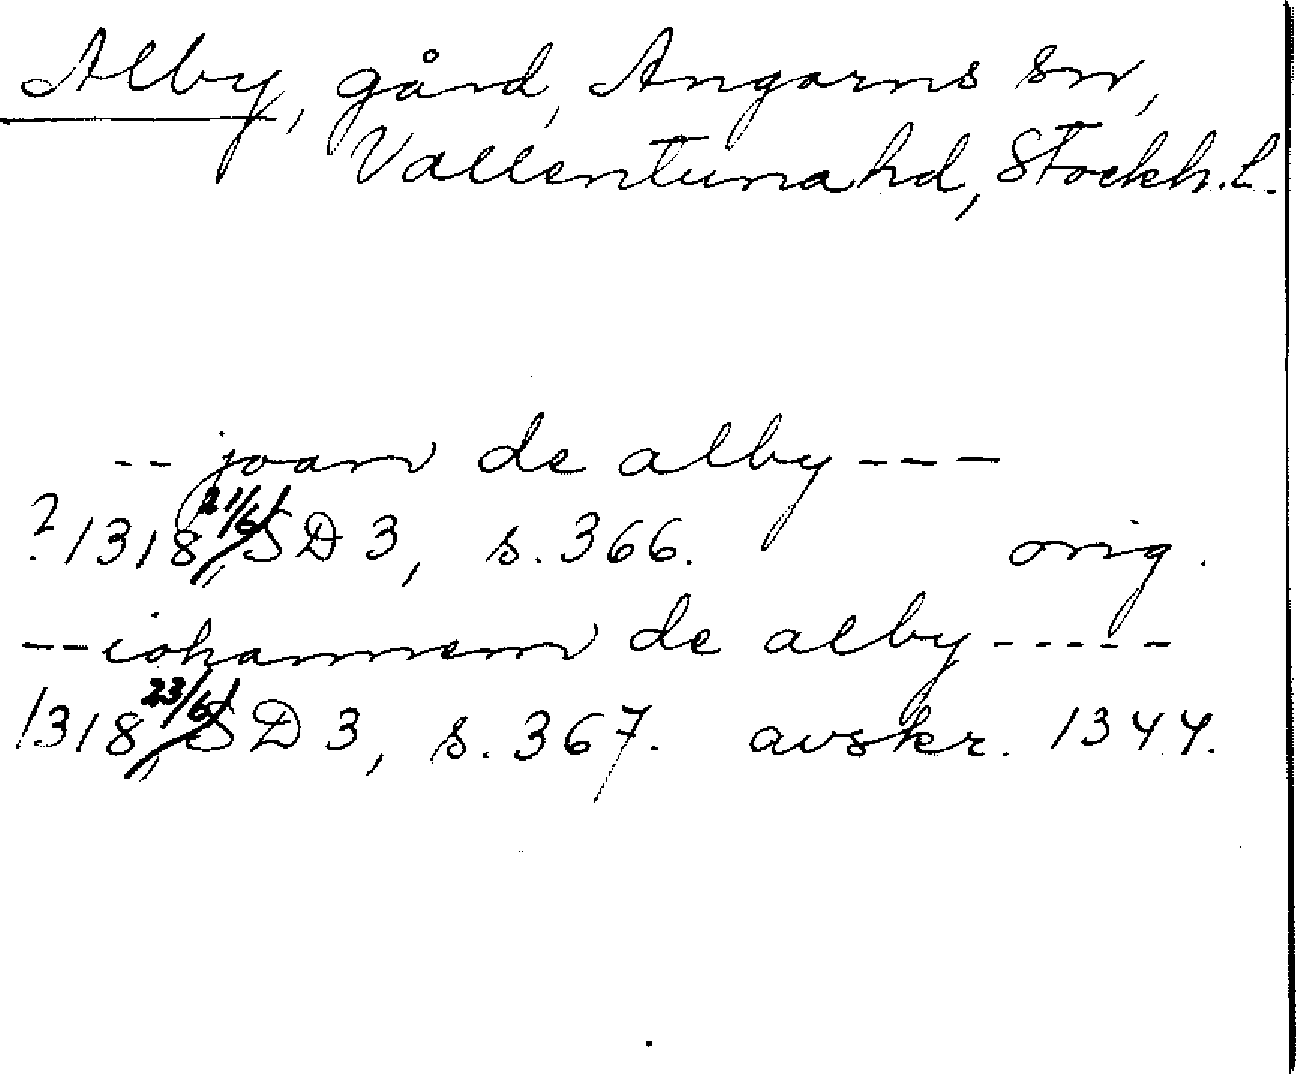 Alby, gård, Angarns sn,
Vallentuna hd, Stockh. L.
-- joan de alby ---
? 1318 21/6 SD 3, s. 366. orig.
-- iohannem de alby -----
1318 23/6 SD 3, s. 367. avskr. 1344.